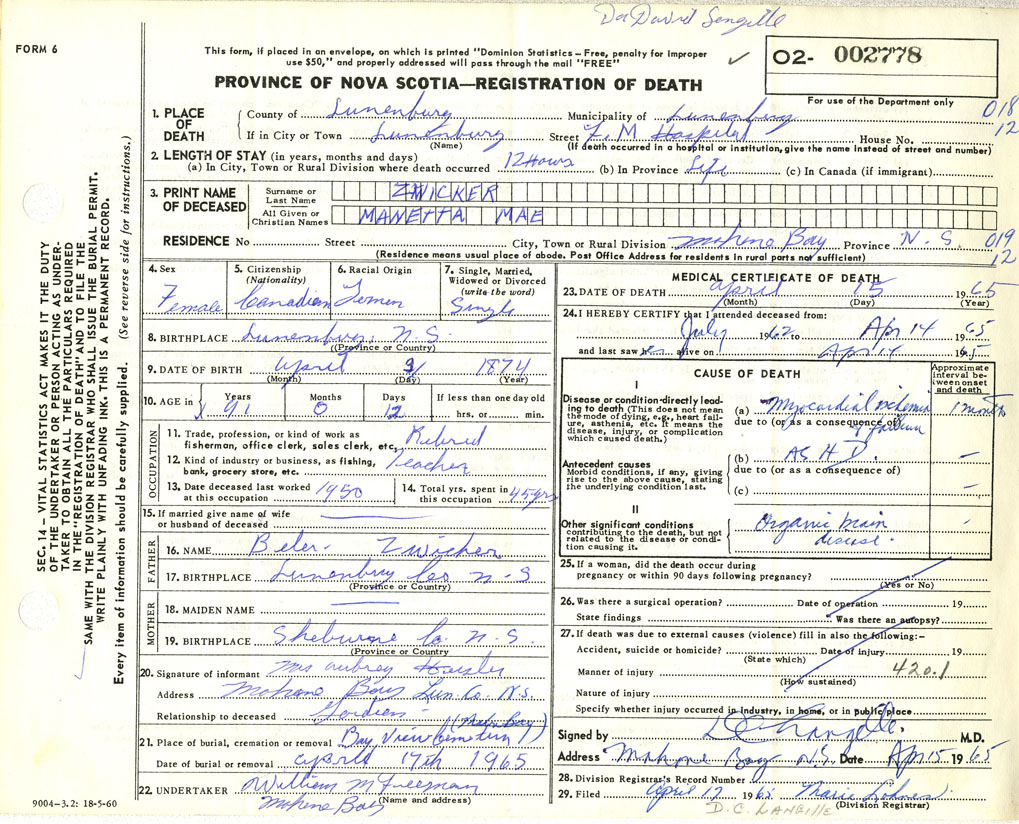 Dr David
FORM 6
This form, if placed in an envelope, on which is printed "Dominion Statistics—Free, penalty for improper
use $50," and properly addressed will pass through the mail "FREE"
✓
O2- 002778
PROVINCE OF NOVA SCOTIA—REGISTRATION OF DEATH
For use of the Department only
1. PLACE OF DEATH
County of Lunenburg Municipality of Lunenburg 018
If in City or Town Lunenburg Street F. M Hospital House No. 12
(Name) (If death occurred in a hospital or institution, give the name instead of street and number)
2. LENGTH OF STAY (in years, months and days)
(a) In City, Town or Rural Division where death occurred 12 Hours (b) In Province Life (c) In Canada (if immigrant)
3. PRINT NAME OF DECEASED
Surname or Last Name ZWICKER
All Given or Christian Names MANETTA MAE
RESIDENCE No Street City, Town or Rural Division Mahone Bay Province N. S. 019
(Residence means usual place of abode. Post Office Address for residents in rural parts not sufficient) 12
4. Sex Female
5. Citizenship (Nationality) Canadian
6. Racial Origin
7. Single, Married, Widowed or Divorced (write the word) Single
8. BIRTHPLACE Lunenburg N. S.
(Province or Country)
9. DATE OF BIRTH April 3 1874
(Month) (Day) (Year)
10. AGE in Years 91 Months 0 Days 12 If less than one day old hrs. or min.
OCCUPATION
11. Trade, profession, or kind of work as fisherman, office clerk, sales clerk, etc. Retired
12. Kind of industry or business, as fishing, bank, grocery store, etc. Teacher
13. Date deceased last worked at this occupation 1950
14. Total yrs. spent in this occupation 45 yrs
15. If married give name of wife or husband of deceased
FATHER
16. NAME Zwicker
17. BIRTHPLACE Lunenburg Co N-S
(Province or Country)
MOTHER
18. MAIDEN NAME
19. BIRTHPLACE Shelburne Co. N. S.
(Province or Country)
20. Signature of informant Mrs Aubrey
Address Mahone Bay Lun Co. N.S.
Relationship to deceased
21. Place of burial, cremation or removal Bay View Cemetery (Mahone Bay)
Date of burial or removal April 17th 1965
22. UNDERTAKER William M Freeman
(Name and address) Mahone Bay
9004-3.2: 18-5-60
MEDICAL CERTIFICATE OF DEATH
23. DATE OF DEATH April 15 1965
(Month) (Day) (Year)
24. I HEREBY CERTIFY that I attended deceased from:
July 1962 to Apr 14 1965
and last saw her alive on Apr 14 1965
CAUSE OF DEATH
Approximate interval between onset and death
I
Disease or condition directly leading to death (This does not mean the mode of dying, e.g., heart failure, asthenia, etc. It means the disease, injury, or complication which caused death.)
(a) Myocardial ischemia 1 month
due to (or as a consequence of)
Antecedent causes
Morbid conditions, if any, giving rise to the above cause, stating the underlying condition last.
(b) A S H D. -
due to (or as a consequence of)
(c) -
II
Other significant conditions contributing to the death, but not related to the disease or condition causing it.
Organic brain disease. -
25. If a woman, did the death occur during pregnancy or within 90 days following pregnancy?
(Yes or No)
26. Was there a surgical operation? Date of operation 19
State findings Was there an autopsy?
27. If death was due to external causes (violence) fill in also the following:—
Accident, suicide or homicide? Date of injury 19
(State which)
Manner of injury 420.1
(How sustained)
Nature of injury
Specify whether injury occurred in industry, in home, or in public place
Signed by D C Langille, M.D.
Address Mahone Bay N.S. Date Apr 15 1965
28. Division Registrar's Record Number
29. Filed April 17 1965
(Division Registrar)
D. C. LANGILLE
SEC. 14 – VITAL STATISTICS ACT MAKES IT THE DUTY
OF THE UNDERTAKER OR PERSON ACTING AS UNDER-
TAKER TO OBTAIN ALL THE PARTICULARS REQUIRED
IN THE "REGISTRATION OF DEATH" AND TO FILE THE
SAME WITH THE DIVISION REGISTRAR WHO SHALL ISSUE THE BURIAL PERMIT.
WRITE PLAINLY WITH UNFADING INK. THIS IS A PERMANENT RECORD.
Every item of information should be carefully supplied. (See reverse side for instructions.)